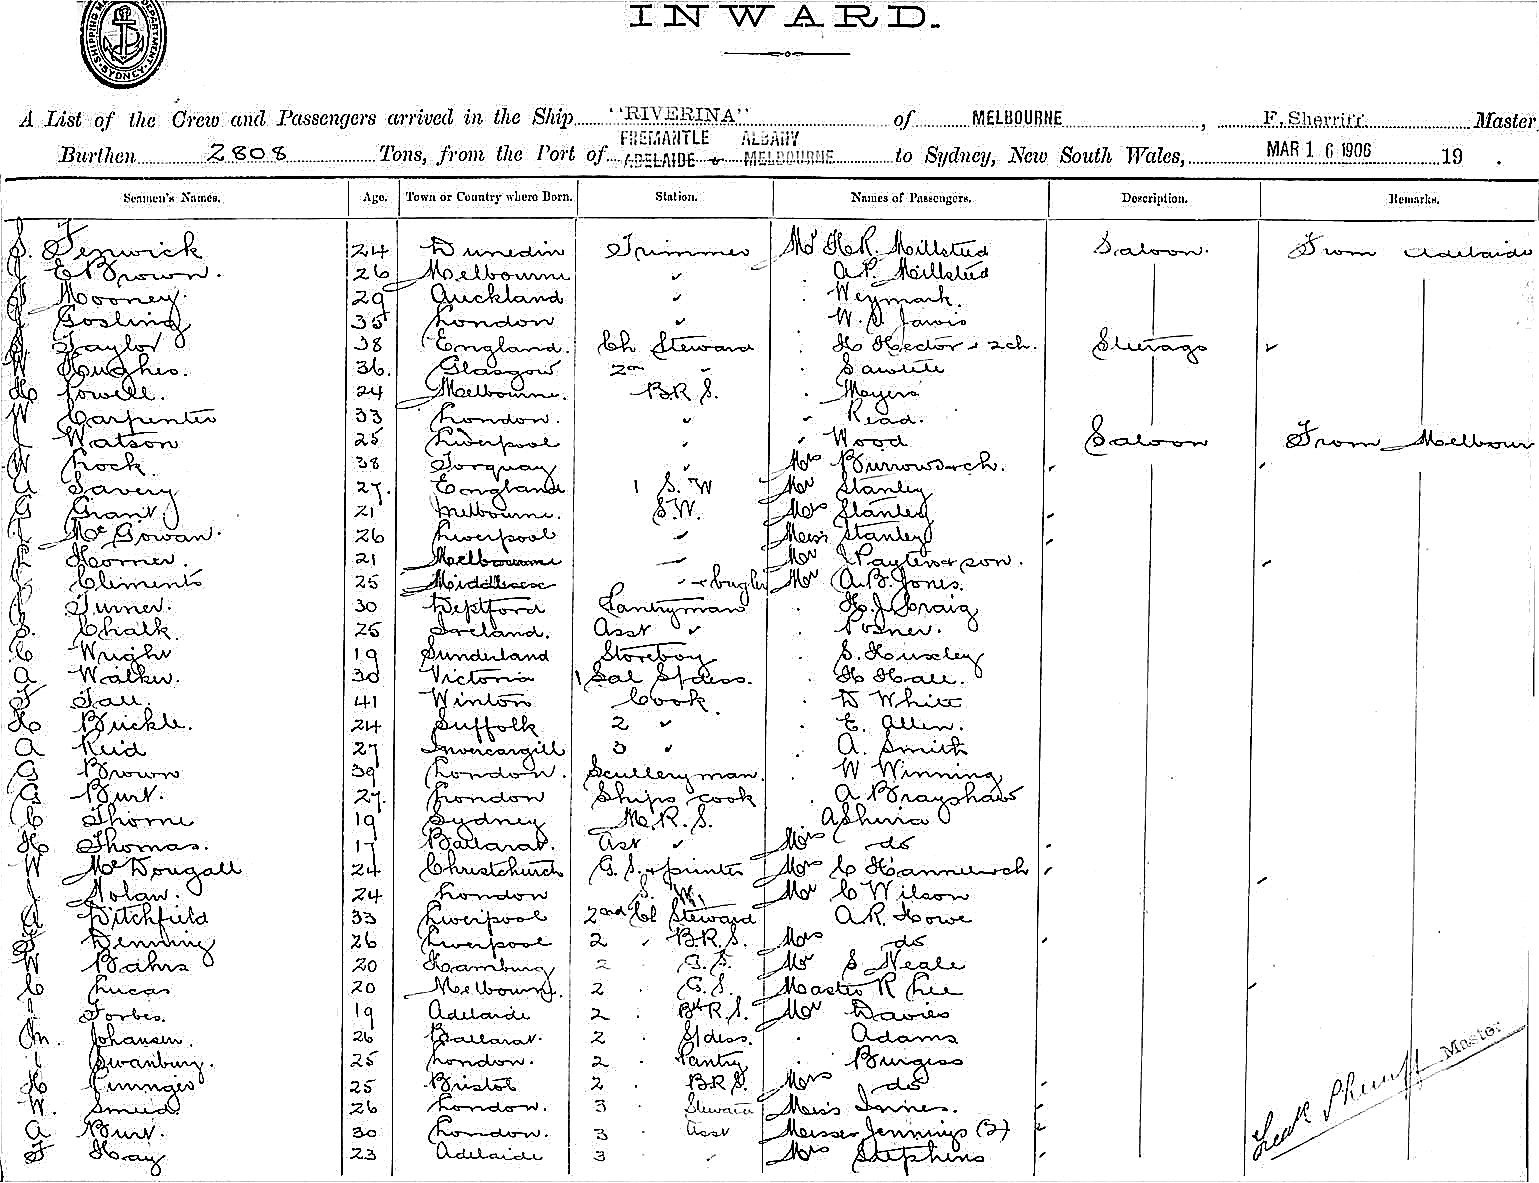 SHIPPING MA DEPARTMENT SYDNEY
INWARD.
A List of the Crew and Passengers arrived in the Ship "RIVERINA" of MELBOURNE, F. Sherriff Master
Burthen 2808 Tons, from the Port of FREMANTLE ALBANY ADELAIDE & MELBOURNE to Sydney, New South Wales, MAR 16 1906 19 .
Seamen's Names. Age. Town or Country where Born. Station. Names of Passengers. Description. Remarks.
S. Fenwick 24 Dunedin Trimmer Mr H.R. Millsted Saloon. From Adelaide
E Brown. 26 Melbourne " A.P. Millsted
Mooney. 29 Auckland " Weymark.
Gosling 35 London " W. S. Jarvis
Taylor 38 England. Ch Steward H Hector & 2 ch. Steerage "
W Hughes. 36. Glasgow 2nd " Sawtell
H Powell. 24 Melbourne. B.R.S. Meyers
W Carpenter 33 London. " Read.
J Watson 25 Liverpool " Wood Saloon From Melbour
W Lock. 38 Torquay " Mrs Burrows & ch.
Savery 27. England 1 S. W Mr Stanley
G Grant. 21 Melbourne. S.W. Mrs Stanley
McGowan. 26 Liverpool " Miss Stanley
Horner. 21 Melbourne " Mr J Payter & son.
Clements 25 Middlesex " & bugler Mr A.B. Jones.
Turner. 30 Deptford Pantryman H. J. Craig
S. Chalk. 25 Ireland. Asst " Posner.
C Wright 19 Sunderland Storeboy S. Huxley
A Walker. 30 Victoria 1 Sal Stdess. H Hall.
F Tall. 41 Winton Cook. D White
H Buckle. 24 Suffolk 2 " E. Allen.
A Reid 27 Invercargill 3 " A. Smith
G Brown 39 London. Scullery man. W Winning
G Burt. 27. London Ships cook A Brayshaw
C Thorne 19 Sydney M.R.S. Ashina
H Thomas. 17 Ballarat. Ast " Mrs do
W McDougall 24 Christchurch G.S. & printer Mrs C Hannu & ch
J Nolan. 24 London S. W. Mr C Wilson
A Pitchfield 33 Liverpool 2nd Cl Steward A.R. Howe
Denning 26 Liverpool 2 . B.R.S. Mrs do
W Bahrs 20 Hamburg 2 . G.S. Mr S Neale
C Lucas 20 Melbourne. 2 . G.S. Master R Lee
Forbes. 19 Adelaide 2 . B.R.S. Mr Davies
M. Johansen. 26 Ballarat. 2 . Stdess. Adams
Swanbury. 25 London. 2 . Pantry Burgess
H 25 Bristol 2 . B.R.S. Mrs do
W. 26 London. 3 . Steward Miss Innes.
A Burt. 30 London. 3 . Asst Misses Jennings (2)
F Hay 23 Adelaide 3 " Mrs Stephens
Fredk Sherriff Master